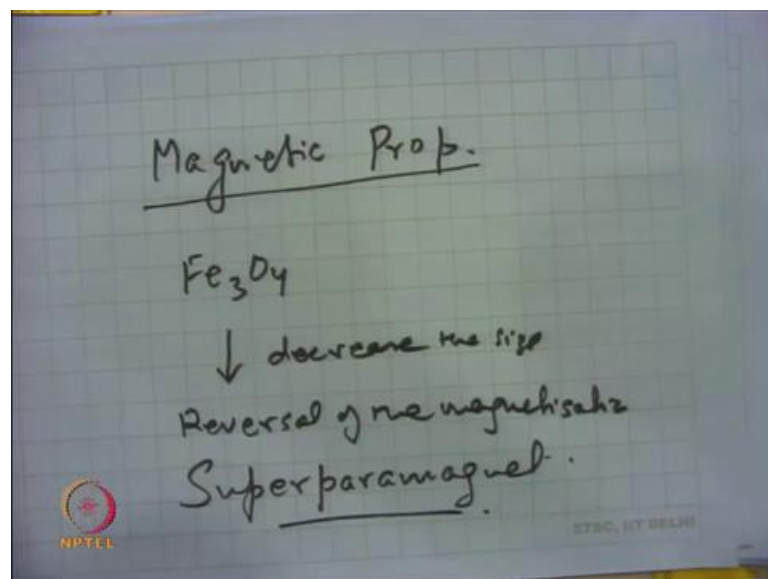 Magnetic Prop.
Fe3O4
↓ decrease the size
Reversal of the magnetisatn
Superparamagnet.
NPTEL
ETSC, IIT DELHI